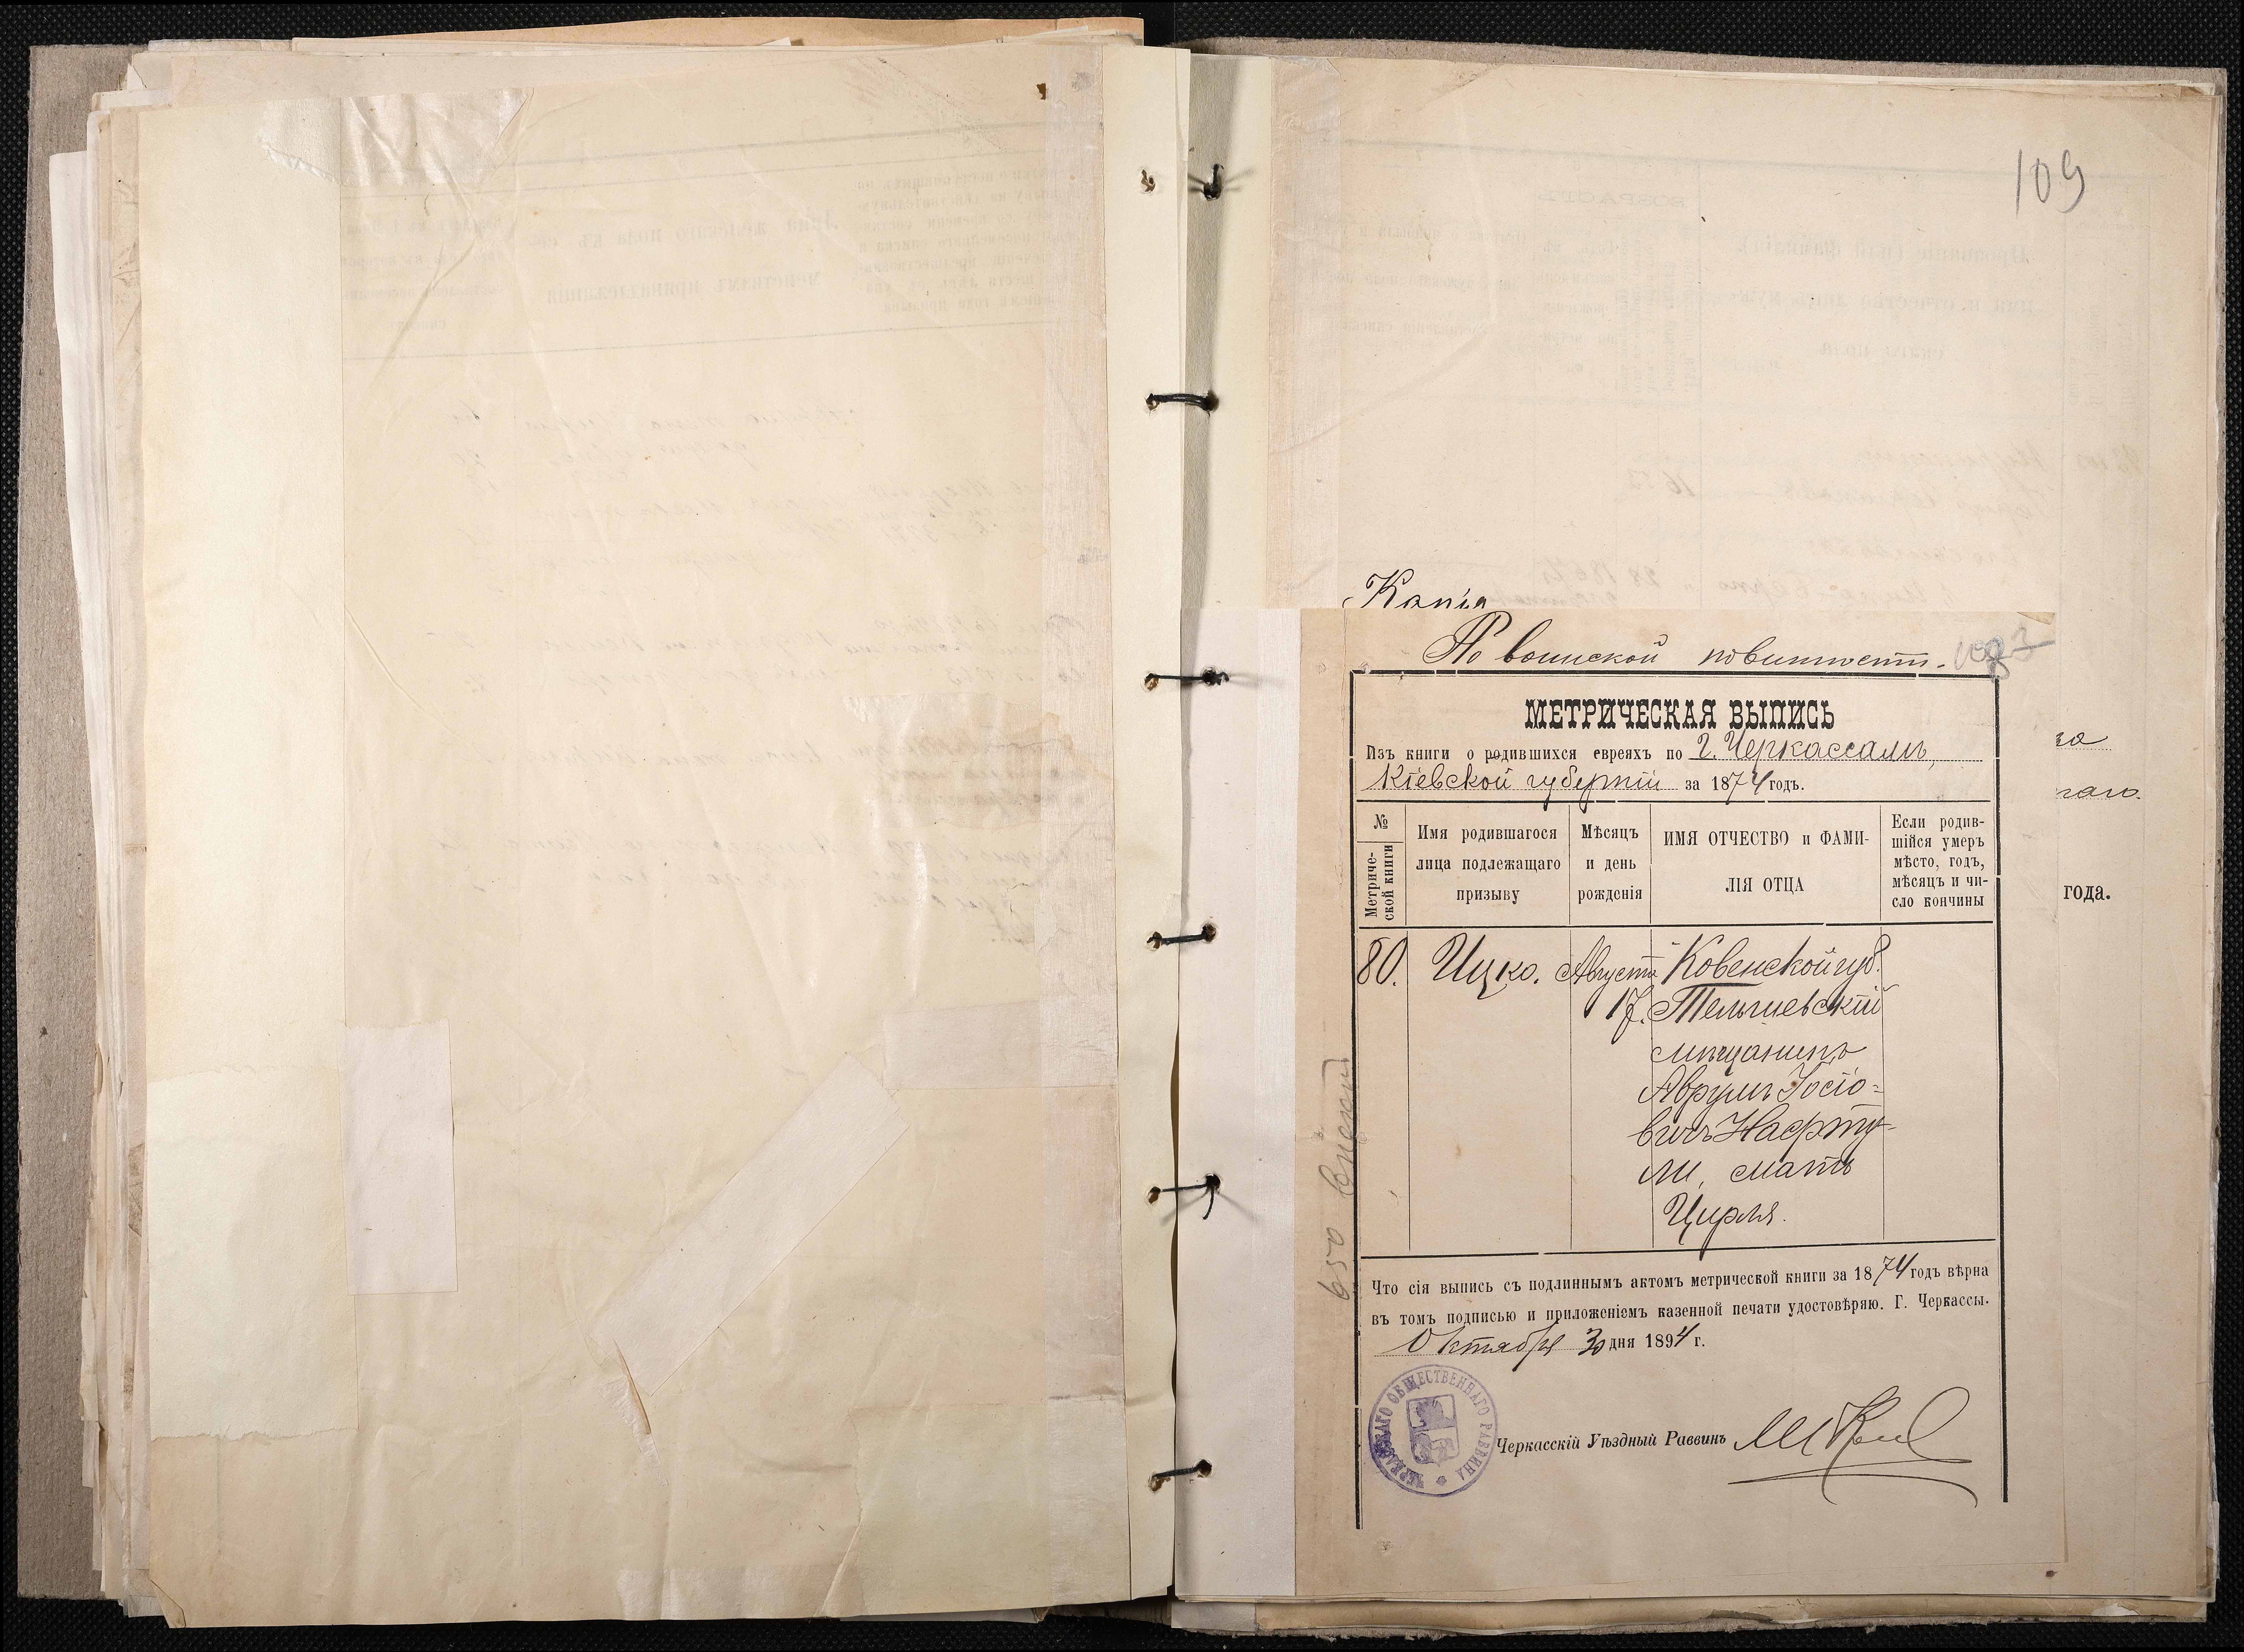 109
Копія
По воинской повинности.
МЕТРИЧЕСКАЯ ВЫПИСЬ
Изъ книги о родившихся евреяхъ по г. Черкассамъ,
Кіевской губерніи за 1874 годъ.
№
Метриче-
ской книги
Имя родившагося
лица подлежащаго
призыву
Мѣсяцъ
и день
рожденія
ИМЯ ОТЧЕСТВО и ФАМИ-
ЛІЯ ОТЦА
Если родив-
шійся умеръ
мѣсто, годъ,
мѣсяцъ и чи-
сло кончины
80.
Ицко.
Августа
17.
Ковенской губ.
Тельшевскій
мѣщанинъ
Аврумъ Іосіо-
вичъ Нафту-
ли, мать
Цирля.
Что сія выпись съ подлиннымъ актомъ метрической книги за 1874 годъ вѣрна
въ томъ подписью и приложеніемъ казенной печати удостовѣряю. Г. Черкассы.
Октября 30 дня 1894 г.
ЧЕРКАССКАГО ОБЩЕСТВЕННАГО РАВВИНА
Черкасскій Уѣздный Раввинъ
650
го
наго.
года.